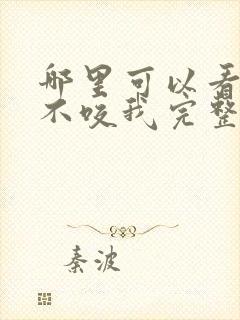 哪里可以看
不咬我完整
秦波